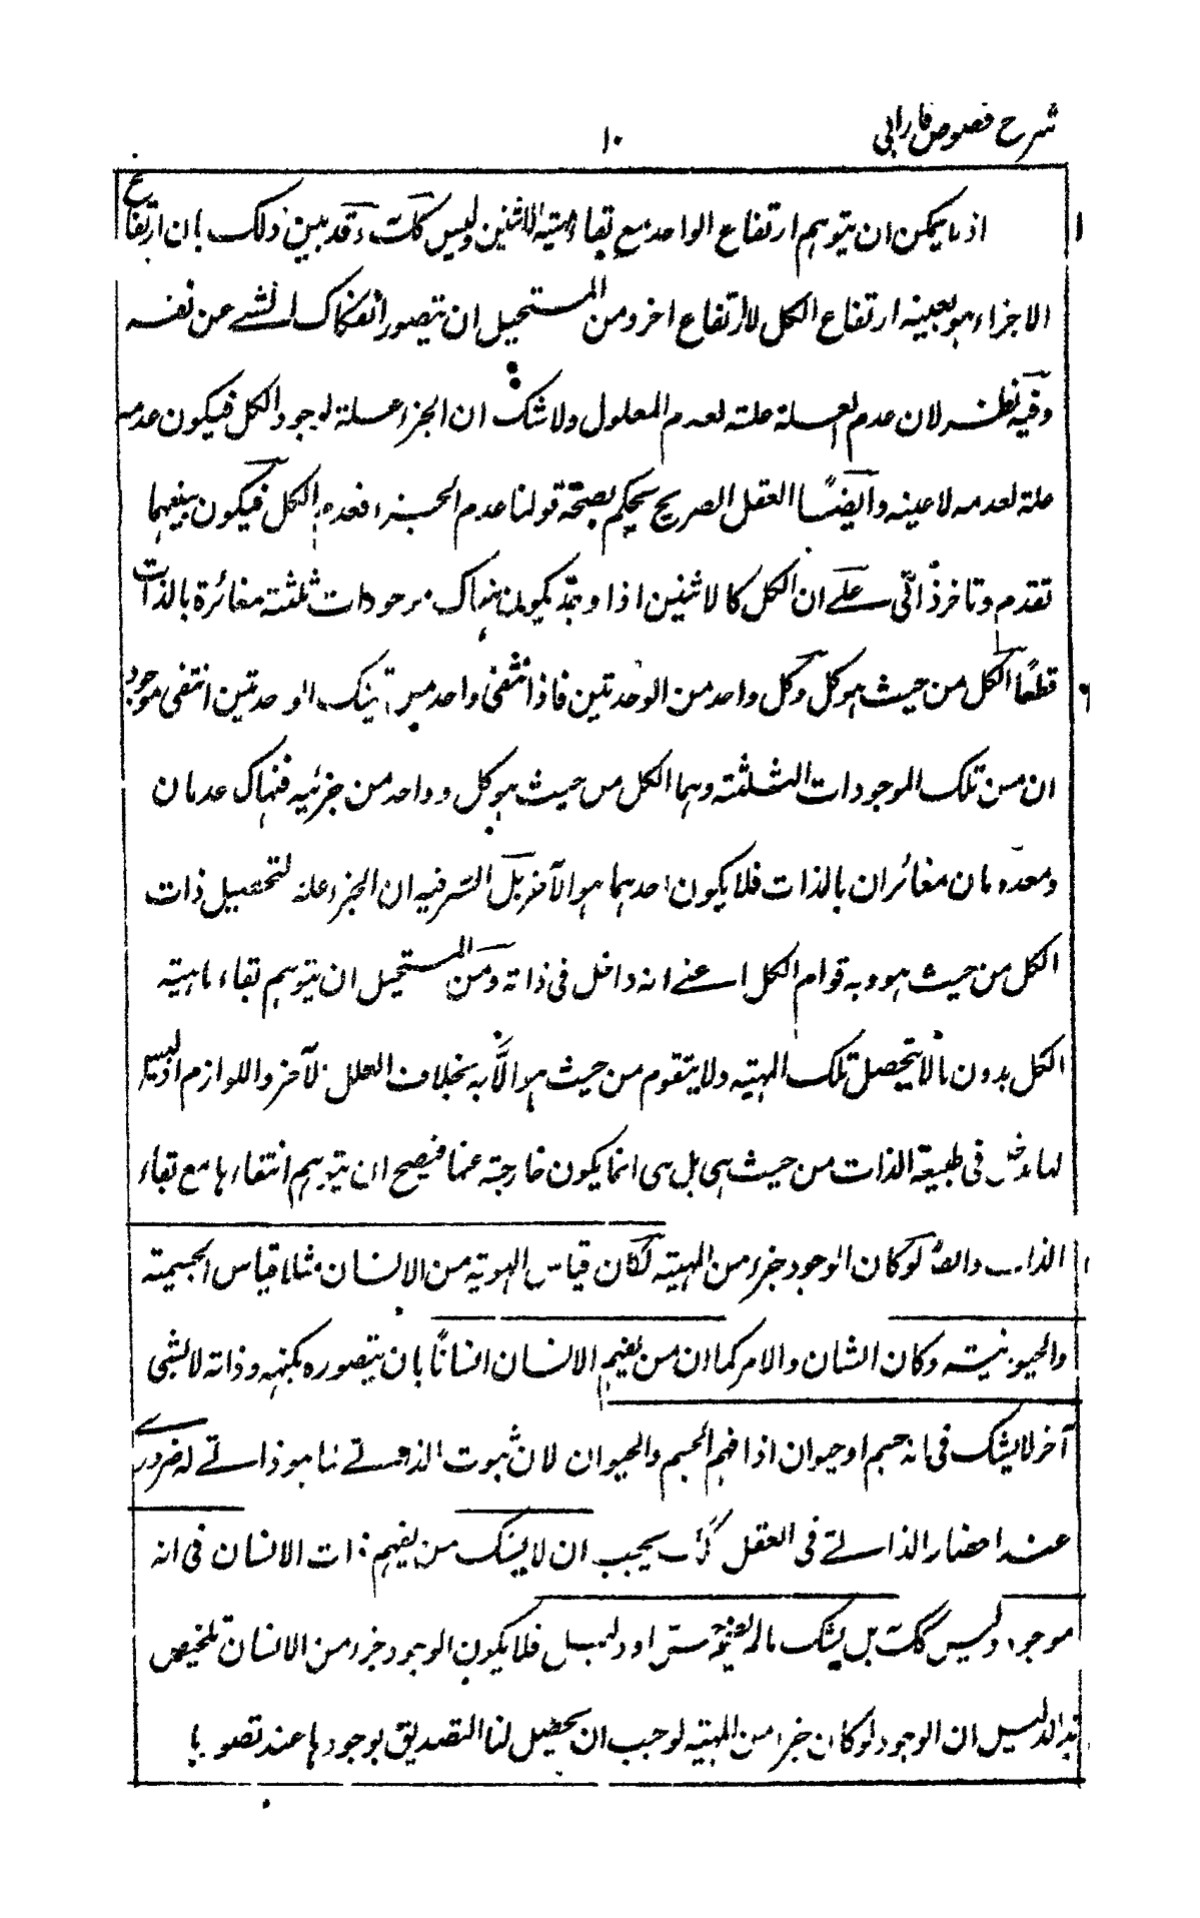 شرح فصوص فارابی
١٠
اذ ما يمكن ان يتوهم ارتفاع الواحد مع بقاء مهية الاثنين وليس كك وقد بين ذلك بان ارتفاع
الاجزاء هو بعينه ارتفاع الكل لا ارتفاع اخر ومن المستحيل ان يتصور انفكاك الشے عن نفسه
وفيه نظر لان عدم العلة علة لعدم المعلول ولا شك ان الجزء علة لوجود الكل فيكون عدمه
علة لعدمه لا عينه وايضًا العقل الصريح يحكم بصحة قولنا عدم الجزء فعدم الكل فيكون بينهما
تقدم وتاخر ذاتى علے ان الكل كالاثنين اذا وجد يكون هناك موجودات ثلثة مغائرة بالذات
قطعًا الكل من حيث هو كل وكل واحد من الوحدتين فاذا انتفى واحد من تينك الوحدتين انتفى موجود
ان من تلك الموجودات الثلثة وهما الكل من حيث هو كل وواحد من جزئيه فهناك عدمان
ومعدومان مغائران بالذات فلا يكون احدهما هو الآخر بل السر فيه ان الجزء علة لتحصيل ذات
الكل من حيث هو وبه قوام الكل اعنے انه داخل فى ذاته ومن المستحيل ان يتوهم بقاء ماهية
الكل بدون مالا يتحصل تلك المهية ولا يتقوم من حيث هو الّا به بخلاف العلل الآخر واللوازم اذ ليس
لها دخل فى طبيعة الذات من حيث هى بل هى انما يكون خارجة عنها فيصح ان يتوهم انتفاءها مع بقاء
الذات وايضًا لو كان الوجود جزء من المهية لكان قياس الهوية من الانسان مثلا قياس الجسمية
والحيوانية وكان الشان والامر كما ان من يفهم الانسان انسانًا بان يتصوره بكنهه وذاته لا بشئ
آخر لا يشك فى انه جسم او حيوان اذا فهم الجسم والحيوان لان ثبوت الذاتے لما هو ذاتے له ضرورے
عند احضار الذاتے فى العقل كذلك يجب ان لا يشك من يفهم ذات الانسان فى انه
موجود وليس كك بل يشك مالم يقم حس او دليل فلا يكون الوجود جزء من الانسان تلخيص
هذا الدليل ان الوجود لو كان جزء من المهية لوجب ان يحصل لنا التصديق بوجودها عند تصورها